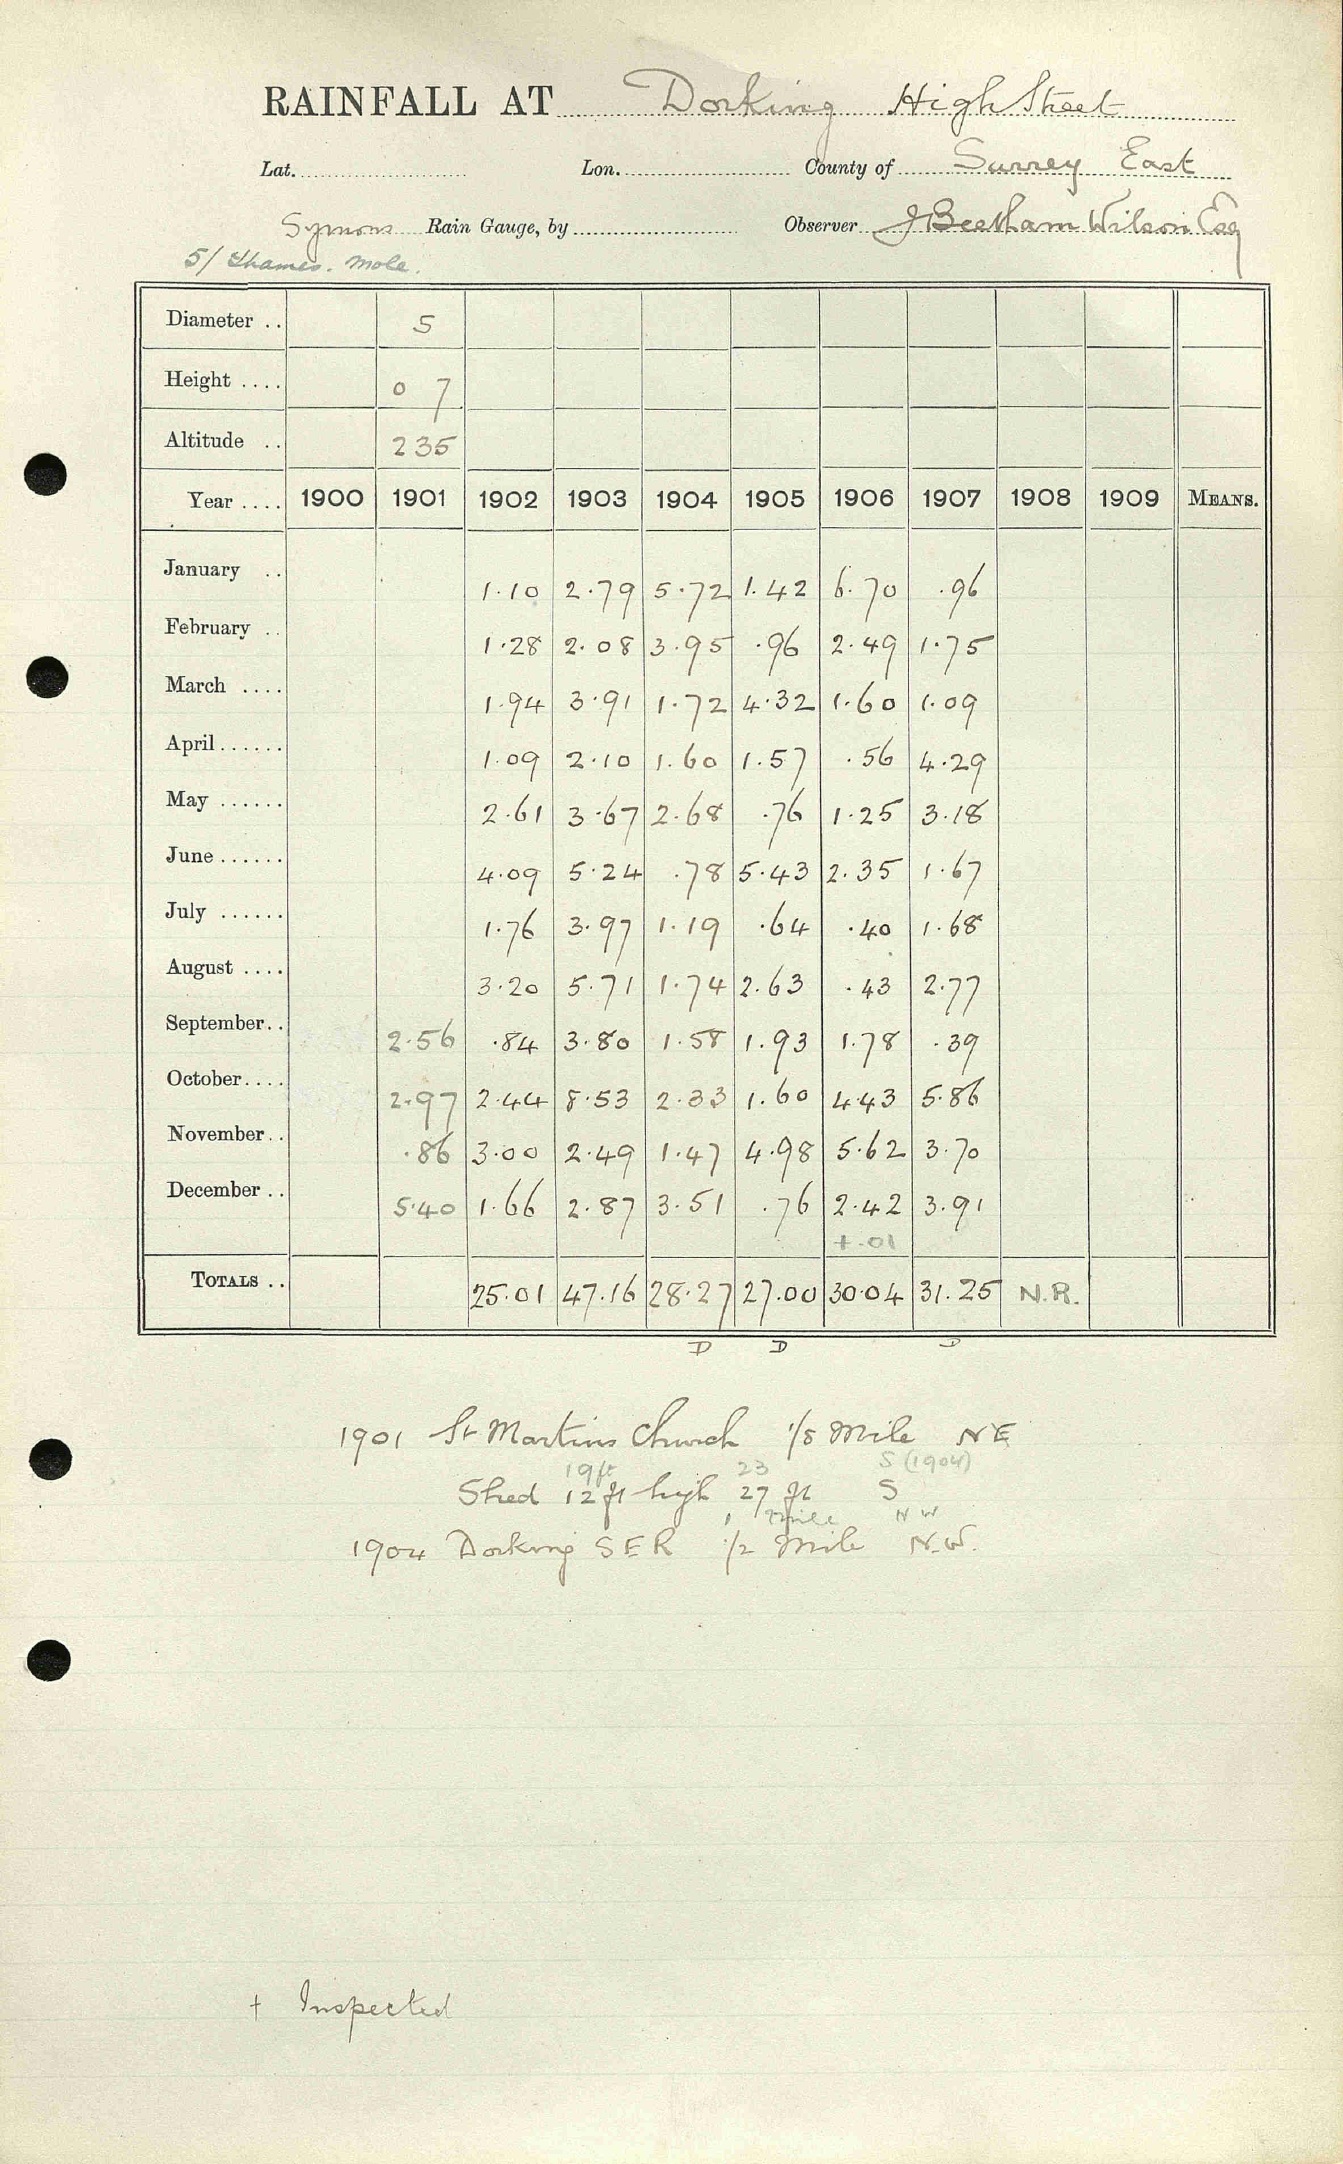 RAINFALL AT Dorking High Street
Lat. Lon. County of Surrey East
Symons Rain Gauge, by Observer J Beetham Wilson Esq
5/ Thames. Mole.
Diameter .. 5
Height .... 0 7
Altitude .. 235
Year .... 1900 1901 1902 1903 1904 1905 1906 1907 1908 1909 MEANS.
January .. 1.10 2.79 5.72 1.42 6.70 .96
February .. 1.28 2.08 3.95 .96 2.49 1.75
March .... 1.94 3.91 1.72 4.32 1.60 1.09
April ...... 1.09 2.10 1.60 1.57 .56 4.29
May ...... 2.61 3.67 2.68 .76 1.25 3.18
June ...... 4.09 5.24 .78 5.43 2.35 1.67
July ...... 1.76 3.97 1.19 .64 .40 1.68
August .... 3.20 5.71 1.74 2.63 .43 2.77
September.. 2.56 .84 3.80 1.58 1.93 1.78 .39
October.... 2.97 2.44 8.53 2.33 1.60 4.43 5.86
November.. .86 3.00 2.49 1.47 4.98 5.62 3.70
December .. 5.40 1.66 2.87 3.51 .76 2.42 3.91
+.01
TOTALS .. 25.01 47.16 28.27 27.00 30.04 31.25 N.R.
D D D
1901 St Martins Church 1/8 Mile NE
19ft 23 S (1904)
Shed 12 ft high 27 ft S
mile NW
1904 Dorking S E R 1/2 Mile N.W.
† Inspected